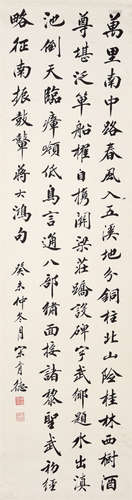 萬里南中路春風入五溪地分銅柱北山險桂林西樹酒
尊堪泛葉船樯自攜開梁莊蹻說碑字武鄉題水出滇
池倒天臨瘴嶺低鳥言通八部繡面接諸黎聖武初經
略征南振鼓鼙蔣士鴻句
癸未仲冬月宋育德